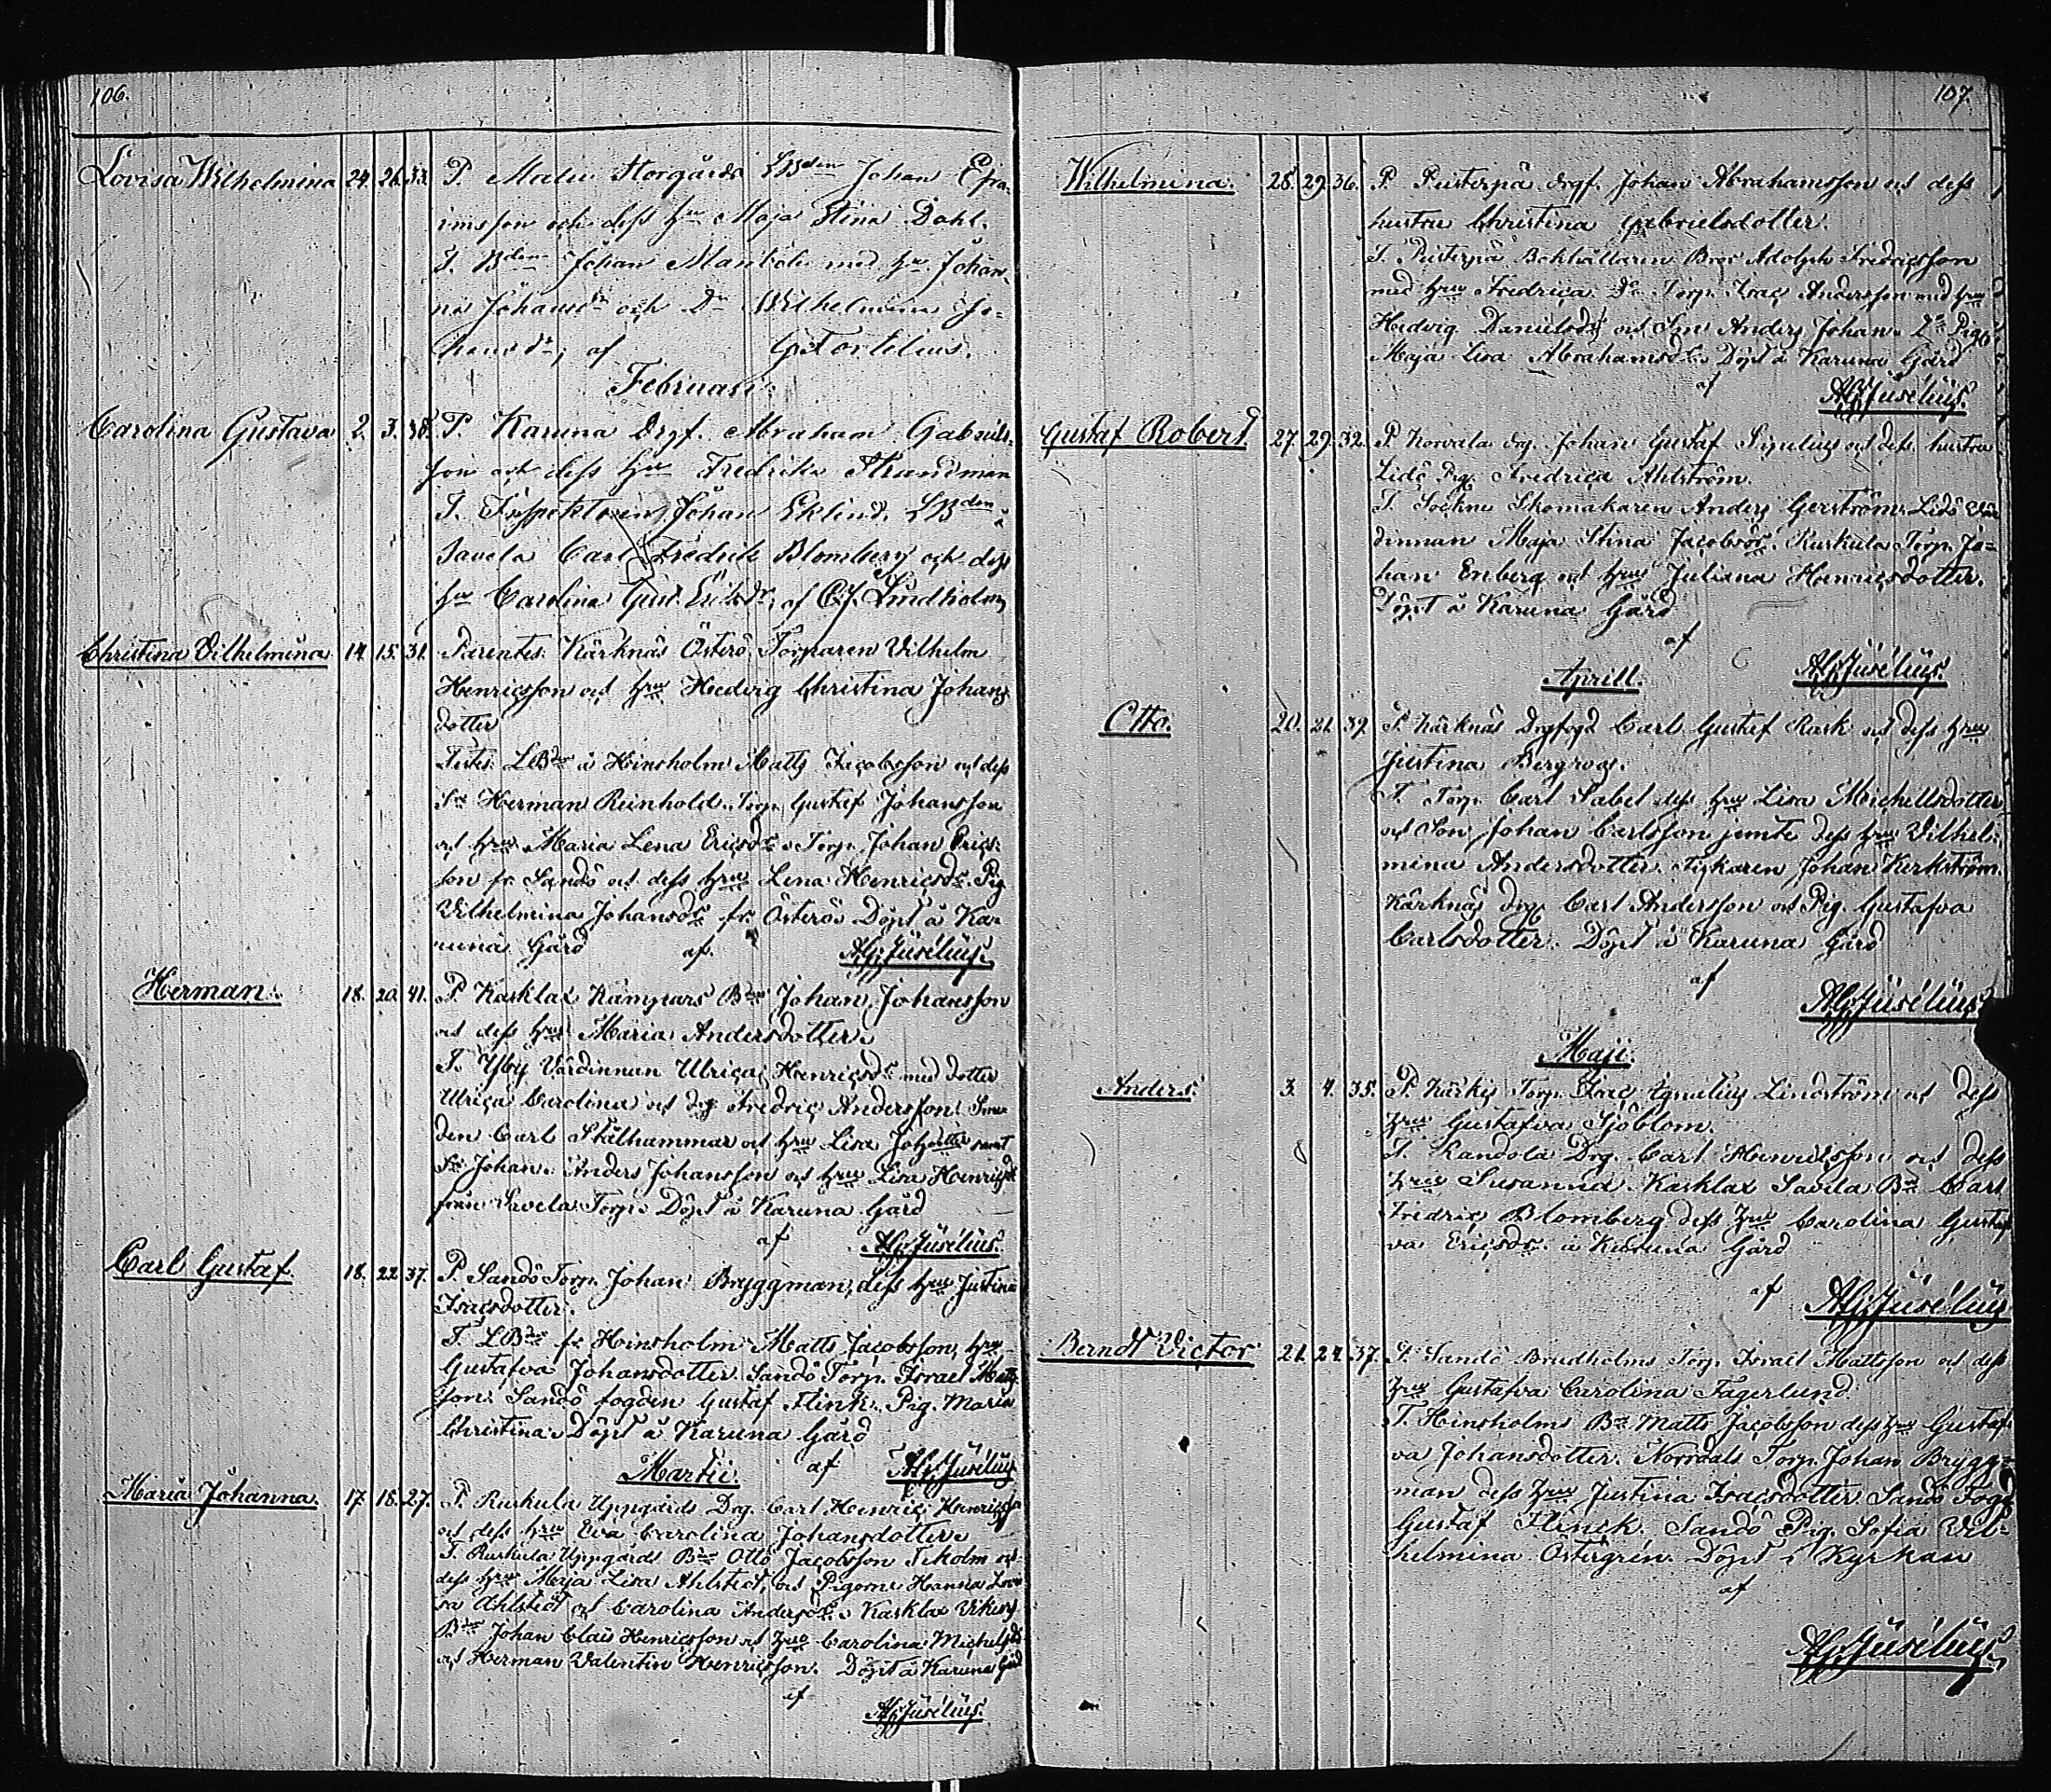 106.
Lovisa Wilhelmina 24. 26. 33. P. Malu Storgårds LBden Johan Efra-
imsson och dess hu Maja Stina Dahl.
T. Bden Johan Manbök med hu Johan-
na Johansdr och Dr Wilhelmina Jo-
hansdr; af G. Fortelius.
Februari:
Carolina Gustava 2. 3. 38. P. Karuna Drgf. Abraham Gabriels-
son och dess hu Fredrika Strandman
T. Inspektoren Johan Eklind. LBden i
Savela Carl Fredrik Blomberg och dess
hu Carolina Gust. Ericsdr, af C. J. Lindholm
Christina Vilhelmina 14. 15. 31. Parentes. Kärknäs Österö Torparen Vilhelm
Henricsson och hru Hedvig Christina Johans
dotter
Testes. LBdn å Hinsholm Matts Jacobsson och dess
Sn Herman Reinhold. Torp. Gustaf Johansson
och hru Maria Lena Ericsdr. Torp. Johan Erics-
son fr. Sandö och dess hru Lena Henricsdr. Pig.
Vilhelmina Johansdr fr. Österö. Döpt å Ka-
runa Gård af. A. G. Jusélius.
Herman. 18. 20. 41. P. Karklax Kämpars Bdn Johan Johansson
och dess hru Maria Andersdotter.
T. Yby Värdinnan Ulrica Henricsdr med dotter
Ulrica Carolina och drg Fredric Andersson. Sme-
den Carl Stålhammar och hru Lisa Johdotter samt
Sn Johan. Anders Johansson och hru Lisa Henricsdr
från Savela Torp. Döpt å Karuna Gård
af A. G. Jusélius.
Carl Gustaf. 18. 22. 37. P. Sandö Torp. Johan Bryggman, dess hru Justina
Isacsdotter.
T. LBdn fr. Hinsholm Matts Jacobsson, hru
Gustafva Johansdotter. Sandö Torp. Israel Matts
son. Sandö fogden Gustaf Flink. Pig. Maria
Christina. Döpt å Karuna Gård
Martii. af A. G. Jusélius
Maria Johanna. 17. 18. 27. P. Ruskula Uppgårds Drg. Carl Henric Henricsson
och dess hru Eva Carolina Johansdotter.
T. Ruskula Uppgårds Bdn Otto Jacobsson Ekholm och
dess hru Maja Lisa Ahlstedt, och Pigorna Hanna Lovi
sa Ahlstedt och Carolina Andersdr. Karklax
Bdn Johan Claïs Henricsson och hru Carolina Michelsdr
och Herman Valentin Henricsson. Döpt å Karuna Gård
af
A. G. Jusélius.
107.
Wilhelmina. 28. 29. 36. P. Pusterpä drgf. Johan Abrahamsson och dess
hustru Christina Gabrielsdotter.
T. Pusterpä Bokhållaren Bror Adolph Fredricsson
med hru Fredrica. Do Torp. Isac Andersson med hru
Hedvig Danielsdr och Son Anders Johan. Do Pig.
Maja Lisa Abrahamsdr. Döpt å Karuna Gård
af A. G. Jusélius.
Gustaf Robert. 27. 29. 32. P. Korvala drg. Johan Gustaf och dess hustru
Lidö Pig. Fredrica Ahlström.
T. Sockne Skomakaren Anders Gerström. Lidö Vär
dinnan Maja Stina Jacobsdr. Ruskula Torp. Jo-
han Enberg och hru Juliana Henricsdotter.
Döpt å Karuna Gård
af
Aprill. A. G. Jusélius.
Otto. 20. 21. 39. P. Kärknäs Drgfogd Carl Gustaf Rask och dess hru
Justina Bergroos.
T. Torp. Carl Sabel dess hru Lisa Michellsdotter
och Son Johan Carlsson jemte dess hru Vilhel-
mina Andersdotter. Fiskaren Johan Kerkström.
Kärknäs drg. Carl Andersson och Pig. Gustafva
Carlsdotter. Döpt å Karuna Gård
af
A. G. Jusélius
Maji.
Anders. 3. 4. 35. P. Kärkis Torp. Isac Lindström och dess
hru Gustafva Sjöblom.
T. Randola Drg. Carl Henricsson och dess
hru Susanna. Karklax Savela Bn Carl
Fredric Blomberg dess hru Carolina Gustaf
va Ericsdr. å Karuna Gård
af A. G. Jusélius
Berndt Victor 21. 24. 37. P. Sandö Brudholms Torp. Israel Mattsson och dess
hru Gustafva Carolina Fagerlund.
T. Hinsholms Bn Matts Jacobsson dess hru Gustaf-
va Johansdotter. Norrdals Torp. Johan Brygg-
man dess hru Justina Isacsdotter. Sandö Fogd
Gustaf Flinck. Sandö Pig. Sofia Vil-
helmina Östergrén. Döpt i Kyrkan
af
A. G. Jusélius